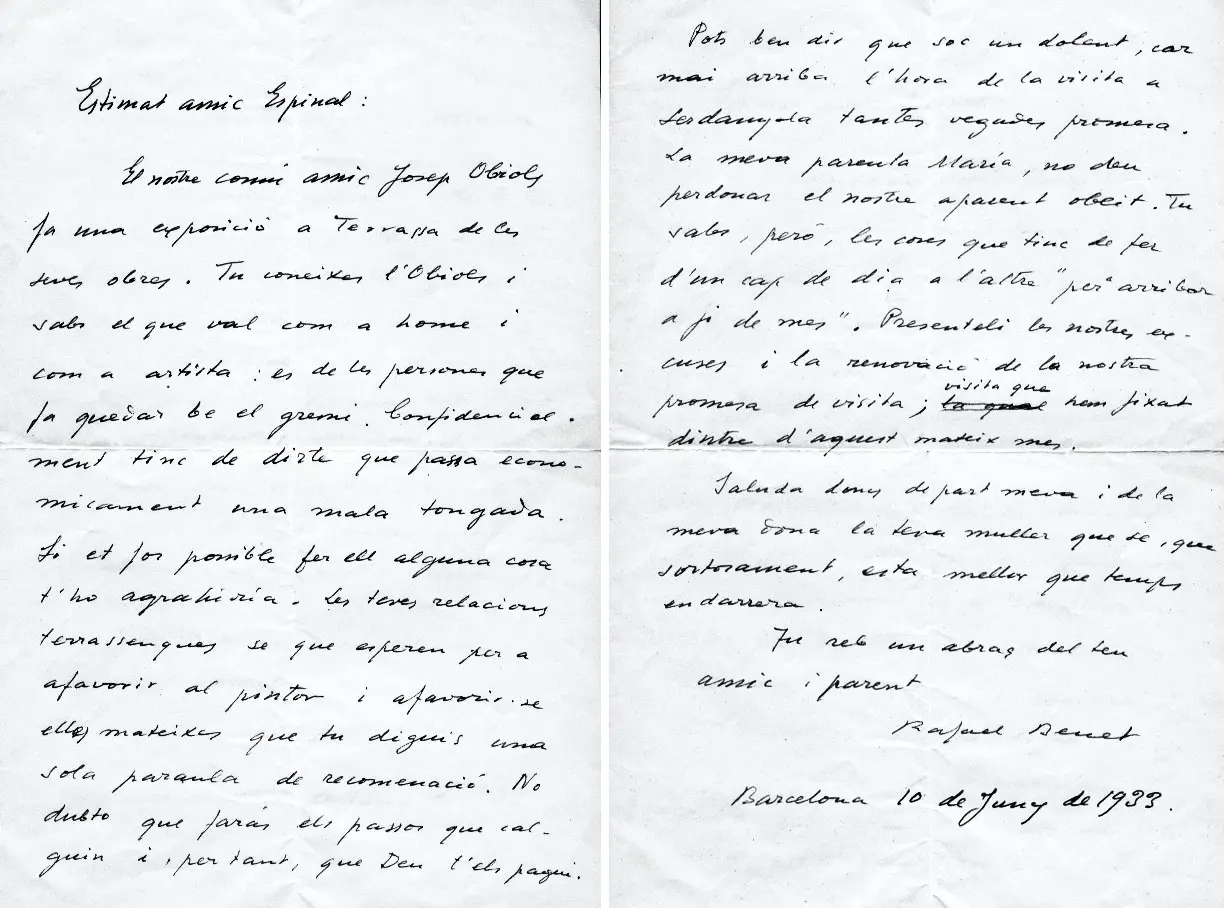 Estimat amic Espinal:
El nostre comú amic Josep Obiols
fa una exposició a Terrassa de les
seves obres. Tu coneixes l'Obiols i
sabs el que val com a home i
com a artista: es de les persones que
fa quedar be el gremi. Confidencial-
ment tinc de dirte que passa econo-
micament una mala tongada.
Si et fos possible fer ell alguna cosa
t'ho agrahiria. Les teves relacions
terrassenques se que esperen per a
afavorir al pintor i afavorir-se
elles mateixes que tu diguis una
sola paraula de recomenació. No
dubto que faràs els passos que cal-
guin i, per tant, que Deu t'els pagui.
Pots ben dir que soc un dolent, car
mai arriba l'hora de la visita a
Serdanyola tantes vegades promesa.
La meva parenta María, no deu
perdonar el nostre aparent obleit. Tu
sabs, però, les coses que tinc de fer
d'un cap de dia a l'altre "per arribar
a fi de mes". Presenteli les nostres ex-
cuses i la renovació de la nostra
promesa de visita; visita que hem fixat
dintre d'aquest mateix mes.
Saluda doncs de part meva i de la
meva dona la teva muller que se, que
sortosament, esta mellor que temps
endarrera.
Tu reb un abraç del teu
amic i parent
Rafael Benet
Barcelona 10 de Juny de 1933.